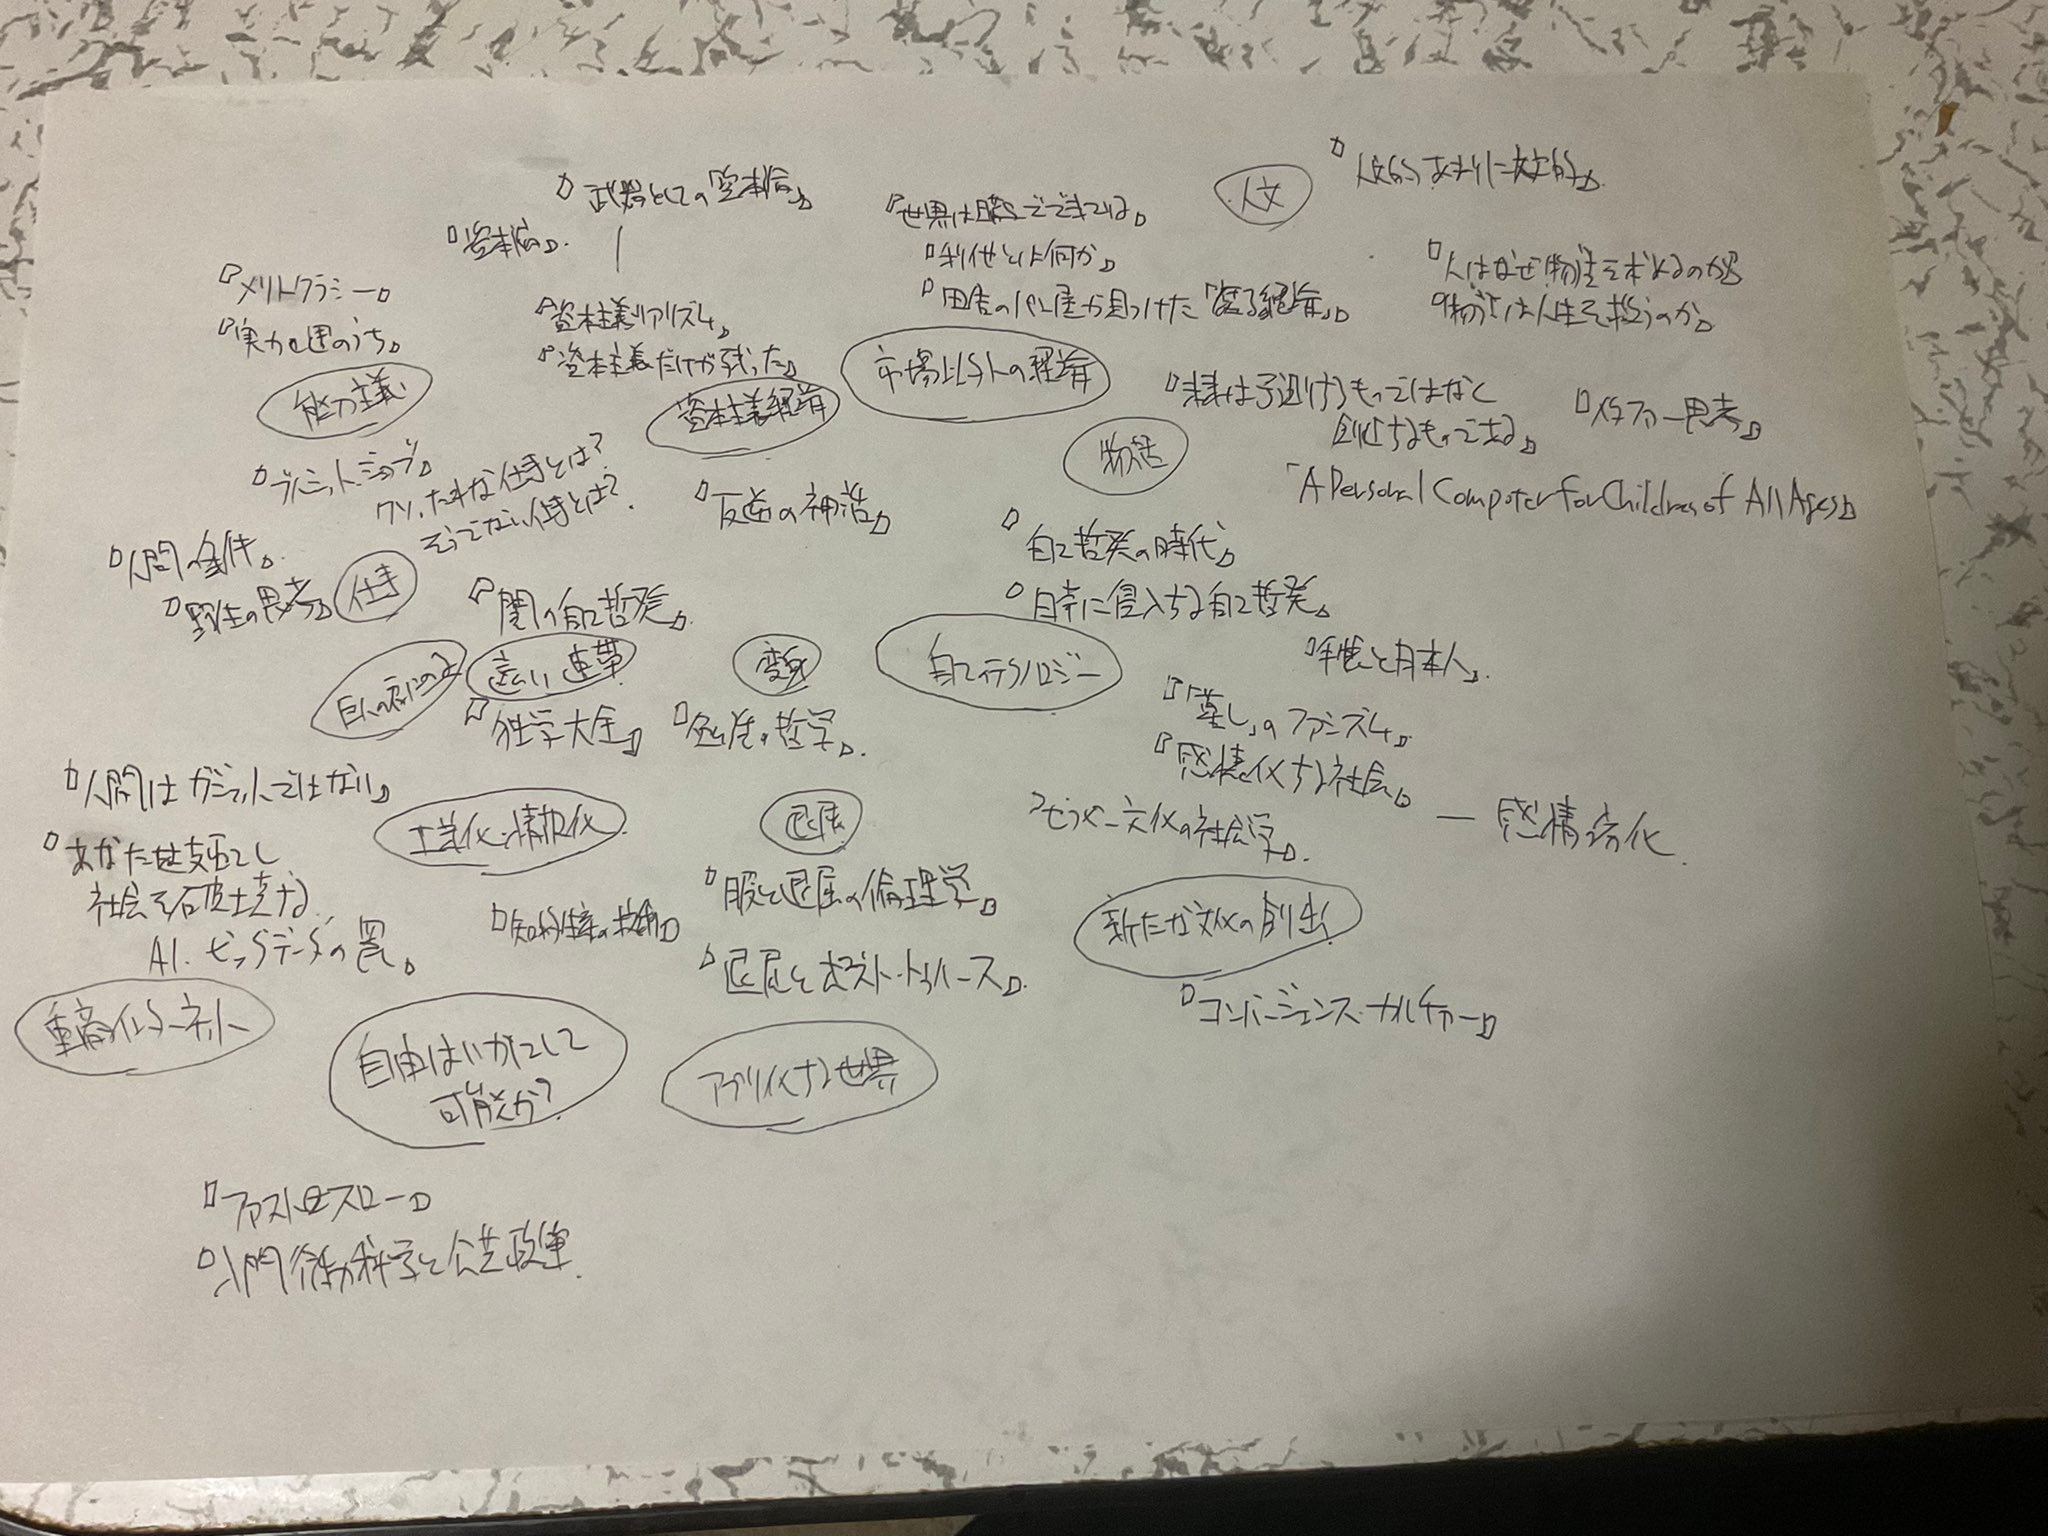 『人文的、あまりに人文的』
人文
『武器としての「資本論」』
『資本論』
『世界は贈与でできている』
『利他とは何か』
『田舎のパン屋が見つけた「腐る経済」』
『人はなぜ物語を求めるのか』
『物語は人生を救うのか』
『メリトクラシー』
『実力も運のうち』
能力主義
『資本主義リアリズム』
『資本主義だけ残った』
資本主義経済
市場以外の経済
『未来は予測するものではなく
創造するものである』
『メタファー思考』
物語
『A Personal Computer for Children of All Ages』
『ブルシット・ジョブ』
クソったれな仕事とは?
そうでない仕事とは?
『反逆の神話』
『人間の条件』
『野生の思考』
仕事
『闇の自己啓発』
『自己啓発の時代』
『日常に侵入する自己啓発』
遠い連帯
変身
自己のテクノロジー
『手帳と日本人』
『独学大全』
『勉強の哲学』
『「暮し」のファシズム』
『感情化する社会』
感情劣化
『人間はガジェットではない』
工業化・情報化
退屈
『あなたを支配し
社会を破壊する
AI・ビッグデータの罠』
『知的生産の技術』
『暇と退屈の倫理学』
『退屈とポスト・トゥルース』
新たな文化の創出
『コンバージェンス・カルチャー』
自由はいかにして
可能か?
アプリ化する世界
『ファスト&スロー』
『入門 行動科学と公共政策』